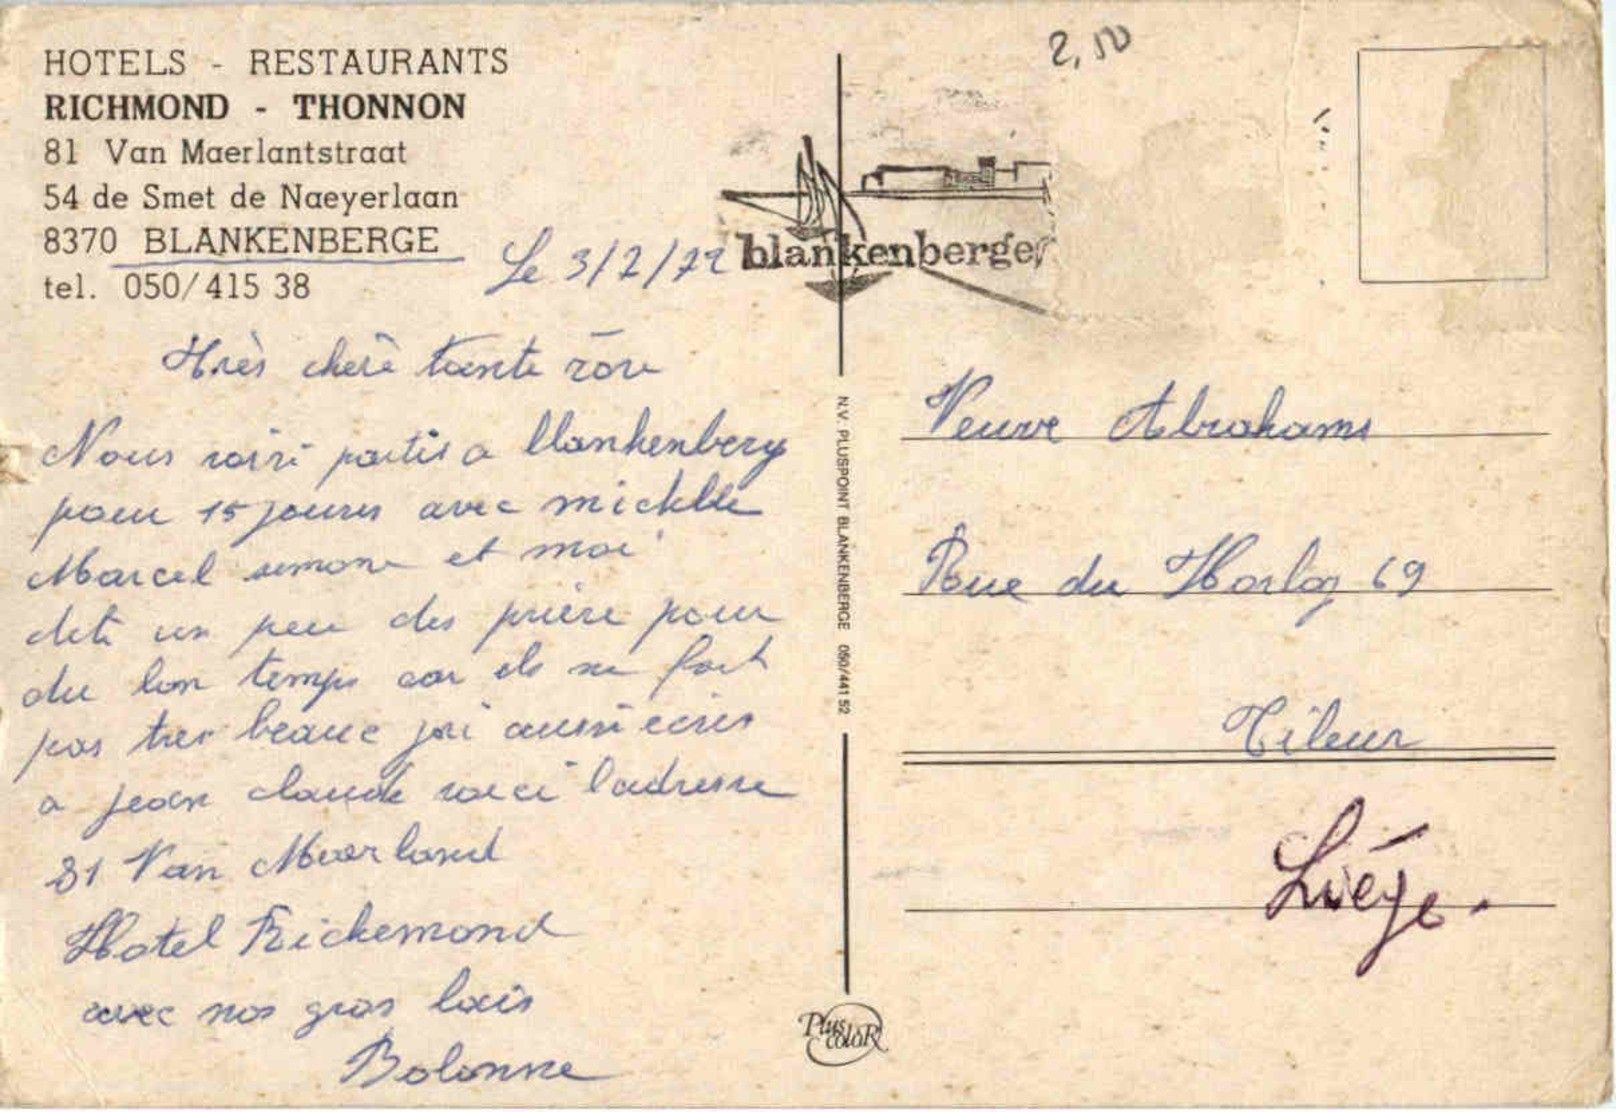 HOTELS - RESTAURANTS
RICHMOND - THONNON
81 Van Maerlantstraat
54 de Smet de Naeyerlaan
8370 BLANKENBERGE
tel. 050/415 38
Le 3/2/72
blankenberge
2,50
Très chère tante
Nous partis a blankenberg
pour 15 jours avec
Marcel simone et moi
un peu des prière pour
du bon temps car il ne fait
pas tres beauc jai aussi ecris
a jean claude voici l'adresse
81 Van Maerland
Hotel Rickemond
avec nos gros bais
Bolonne
N.V. PLUSPOINT BLANKENBERGE 050/441 52
Plus coloR
Veuve Abrahams
Rue du Horloz 69
Tileur
Liége.